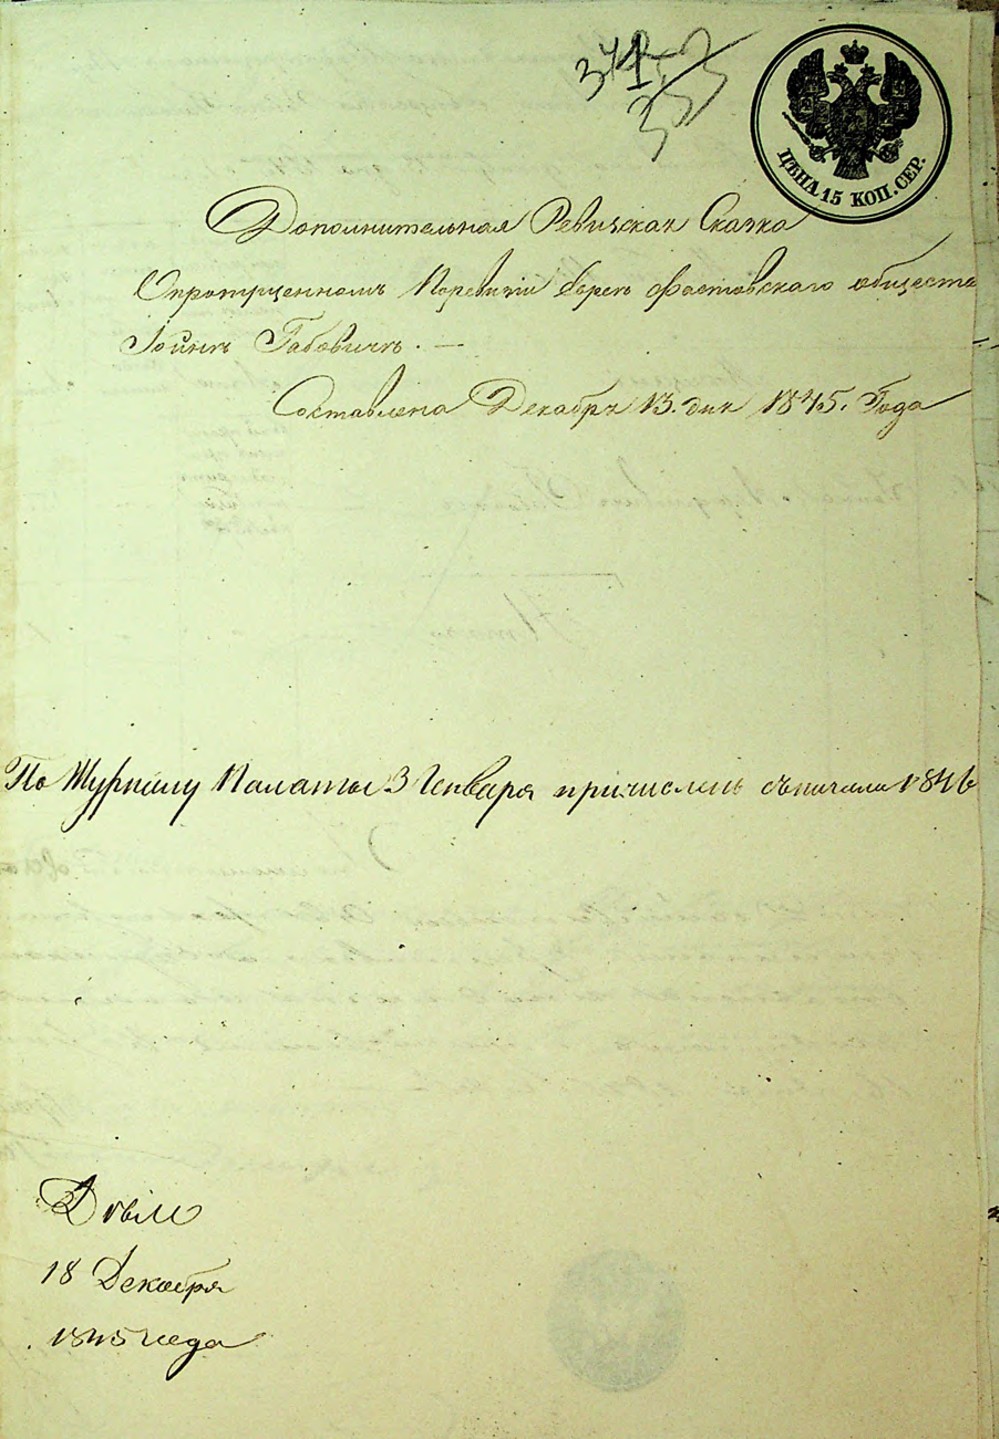 ЦѢНА 15 КОП. СЕР.
Дополнительная Ревизская Сказка
Опропущенномъ Еврею Фастовскаго обществ
Габовичъ. —
Составлена Декабря 13. дня 1845. Года
По Журналу Палаты 3 Генваря причисленъ съ начала 1846
18 Декабря
1845 года